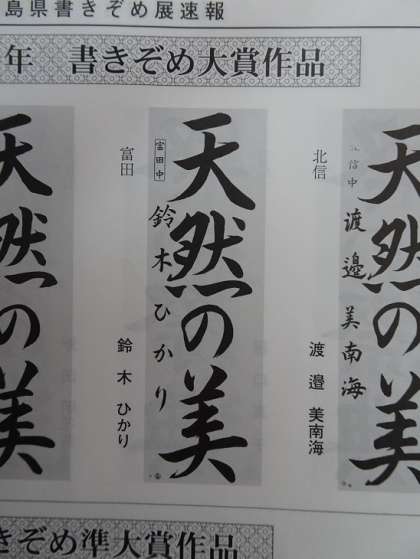 島県書きぞめ展速報
年 書きぞめ大賞作品
天然の美
北信中
渡邉美南海
北信
渡邉 美南海
天然の美
富田中
鈴木ひかり
富田
鈴木 ひかり
天然の美
きぞめ準大賞作品